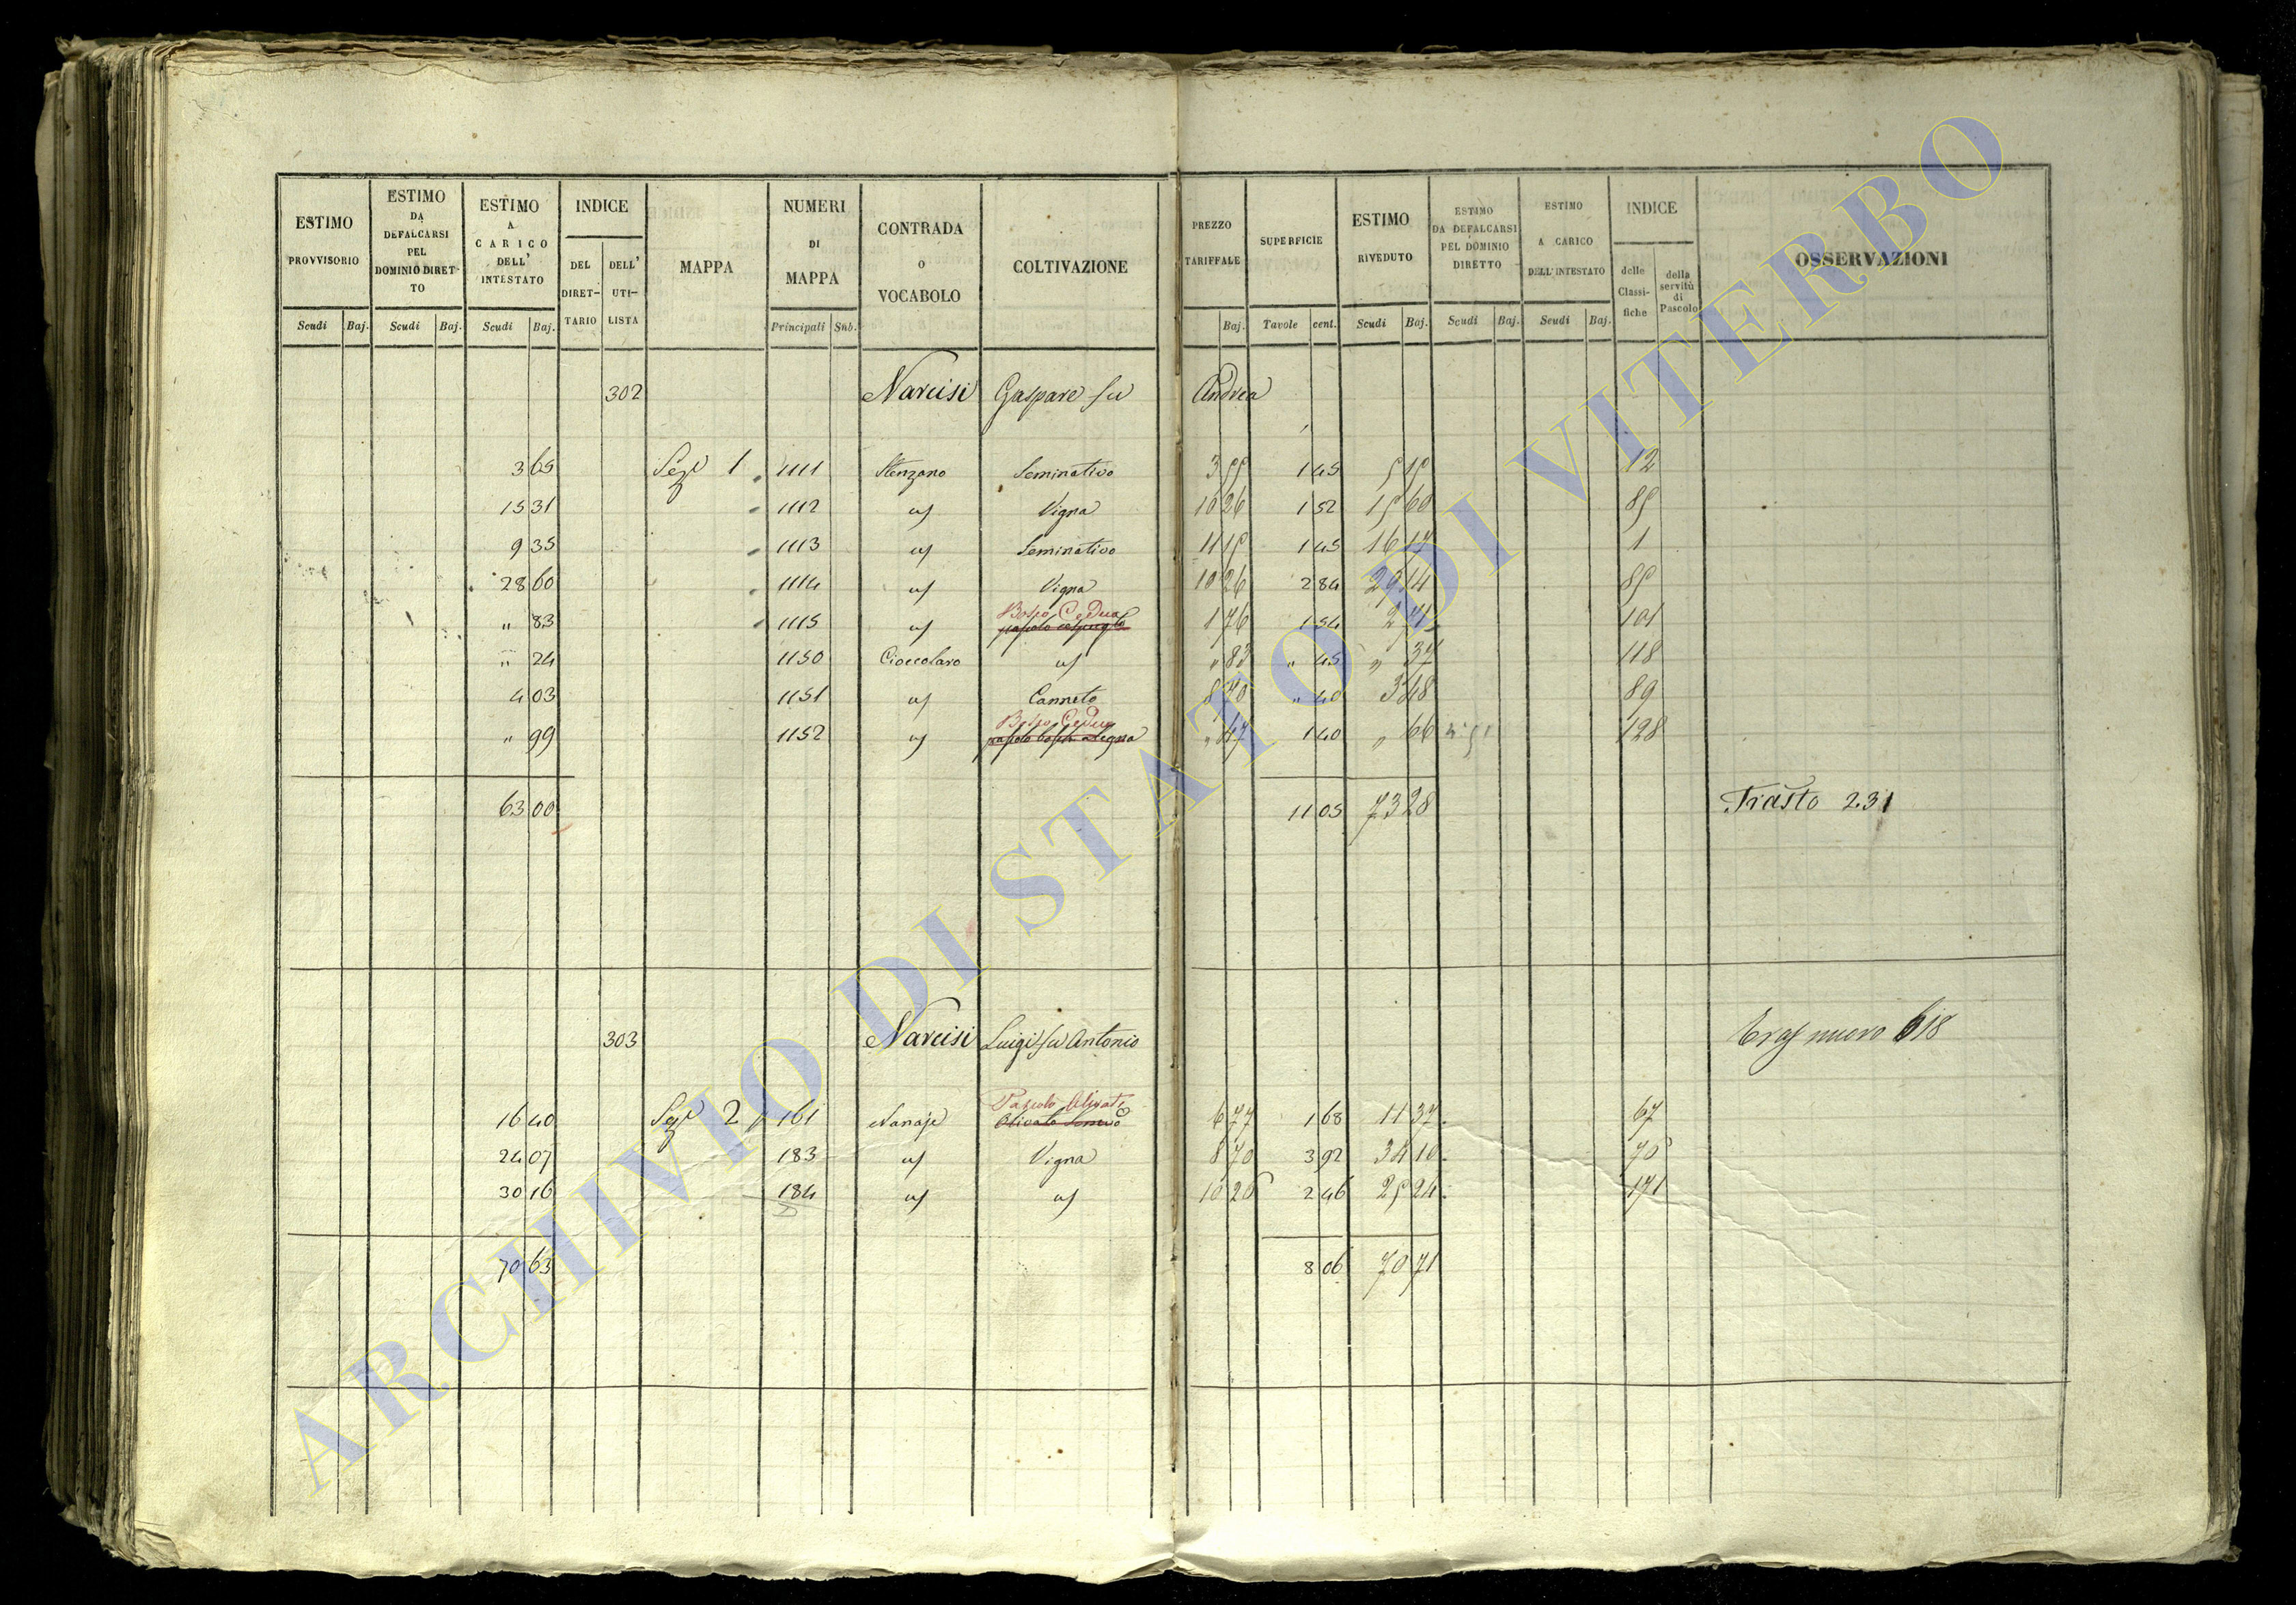 ESTIMO PROVVISORIO
ESTIMO DA DEFALCARSI PEL DOMINIO DIRET-TO
ESTIMO A CARICO DELL' INTESTATO
INDICE
DEL DIRET-TARIO
DELL' UTI-LISTA
MAPPA
NUMERI DI MAPPA
CONTRADA O VOCABOLO
COLTIVAZIONE
PREZZO TARIFFALE
SUPERFICIE
ESTIMO RIVEDUTO
ESTIMO DA DEFALCARSI PEL DOMINIO DIRETTO
ESTIMO A CARICO DELL' INTESTATO
INDICE
delle Classi-fiche
della servitù di Pascolo
OSSERVAZIONI
Scudi Baj. Scudi Baj. Scudi Baj. Principali Sub. Baj. Tavole cent. Scudi Baj. Scudi Baj. Scudi Baj.
302 Narcisi Gaspare fu Andrea
3 65 Sez 1 1111 Stenzano Seminativo 3 55 1 45 5 15 12
15 31 1112 Vigna 10 26 1 52 15 60 85
9 35 1113 Seminativo 11 15 1 45 16 17 1
28 60 1114 Vigna 10 26 2 84 29 14 85
Bosco Ceduo
" 83 1115 pascolo 1 76 1 54 2 71 101
" 24 1150 Cioccolaro " 83 " 45 " 37 118
4 03 1151 Canneto 8 70 " 40 3 48 89
Bosco Ceduo
" 99 1152 pascolo " 47 1 40 " 66 128
63 00 11 05 73 28 Trasto 231
303 Narcisi Luigi fu Antonio nuovo 618
Pascolo Olivato
16 40 Sez 2 161 Nanaje Olivato 6 77 1 68 11 37 67
24 07 183 Vigna 8 70 3 92 34 10 70
30 16 184 10 26 2 46 25 24 171
70 63 8 06 70 71
ARCHIVIO DI STATO DI VITERBO